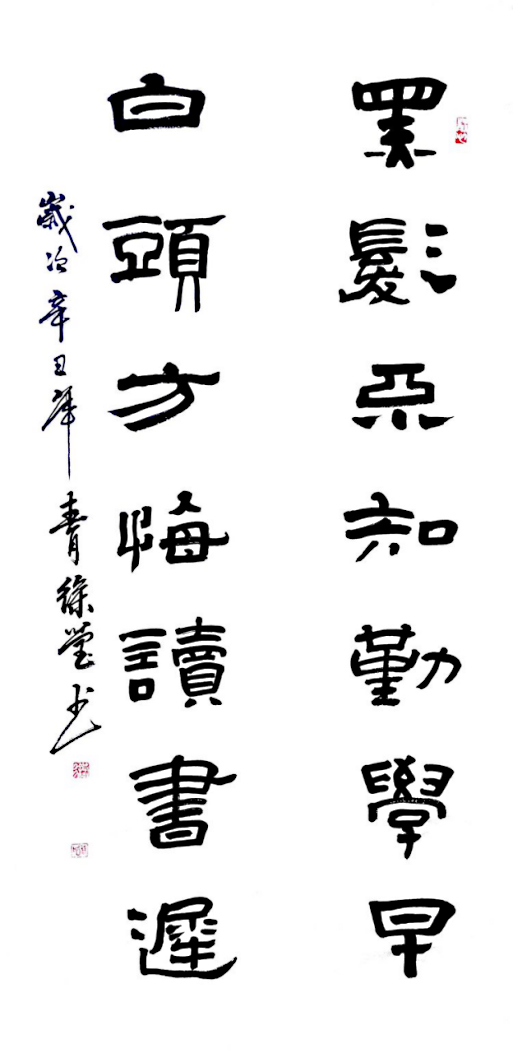 黑髮不知勤學早
白頭方悔讀書遲
歲次辛丑年 徐瑩书